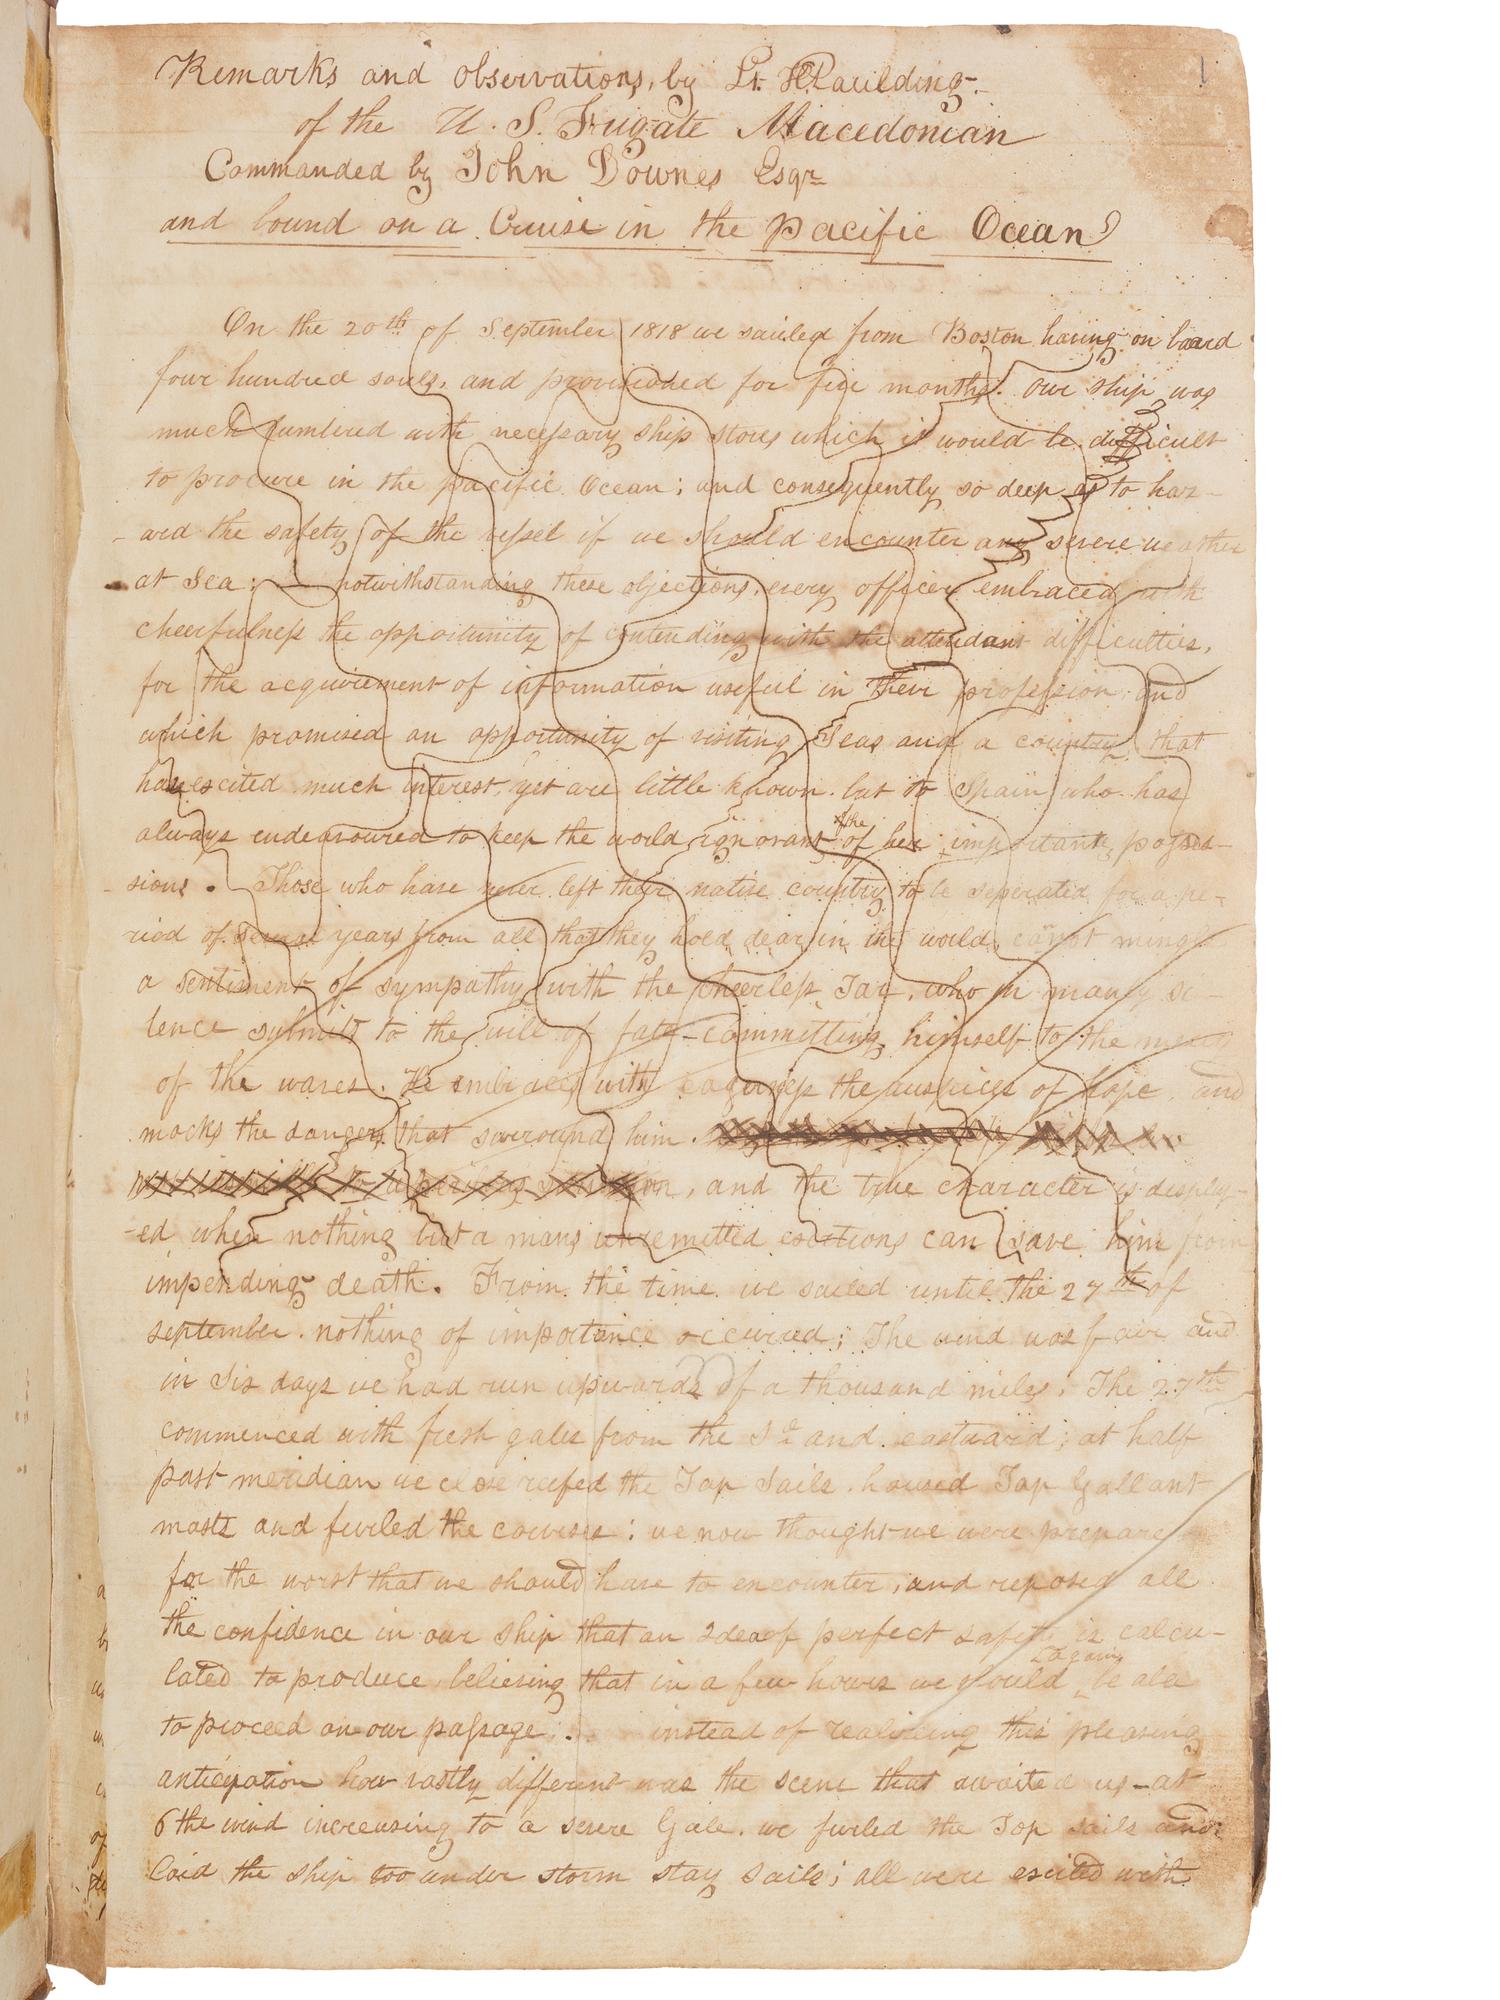 1
Remarks and observations, by Lt. H Paulding.
of the U. S. Frigate Macedonian
Commanded by John Downes Esqr
and bound on a Cruise in the Pacific Ocean
On the 20th of September 1818 we sailed from Boston having on board
four hundred souls, and provisioned for five months. our ship was
much lumbered with necessary ship stores which it would be difficult
to procure in the pacific Ocean; and consequently so deep as to haz-
-ard the safety of the vessel if we should encounter any severe weather
at Sea; — notwithstanding these objections, every officer embraced with
cheerfulness the opportunity of contending with the attendant difficulties,
for the acquirement of information useful in their profession, and
which promised an opportunity of visiting Seas and a country, that
have excited much interest, yet are little known. but to Spain who has
always endeavoured to keep the world ignorant of the her important posses-
-sions. Those who have never left their native country to be seperated for a pe-
riod of several years from all that they hold dear in the world, canot mingle
a sentiment of sympathy with the cheerless Tar, who in manly si-
lence submits to the will of fate-committing himself to the mercy
of the waves. He embraces with eagerness the auspices of hope, and
mocks the dangers that surround him.
situation, and the true character is display-
-ed when nothing but a mans unremitted exertions can save him from
impending death. From the time we sailed until the 27th of
september. nothing of importance occurred; The wind was fair and
in six days we had run upwards of a thousand miles; The 27th
commenced with fresh gales from the Sd and eastward; at half
past meridian we close reefed the Top Sails. housed Top Gallant
masts and furled the courses: we now thought we were prepared
for the worst that we should have to encounter, and reposed all
the confidence in our ship that an Idea of perfect safety is calcu-
lated to produce believing that in a few hours we should again be able
to proceed on our passage; instead of realising this pleasing
anticipation how vastly different was the scene that awaited us-at
6 the wind increasing to a severe Gale. we furled the Top sails and
laid the ship too under storm stay sails; all were excited with